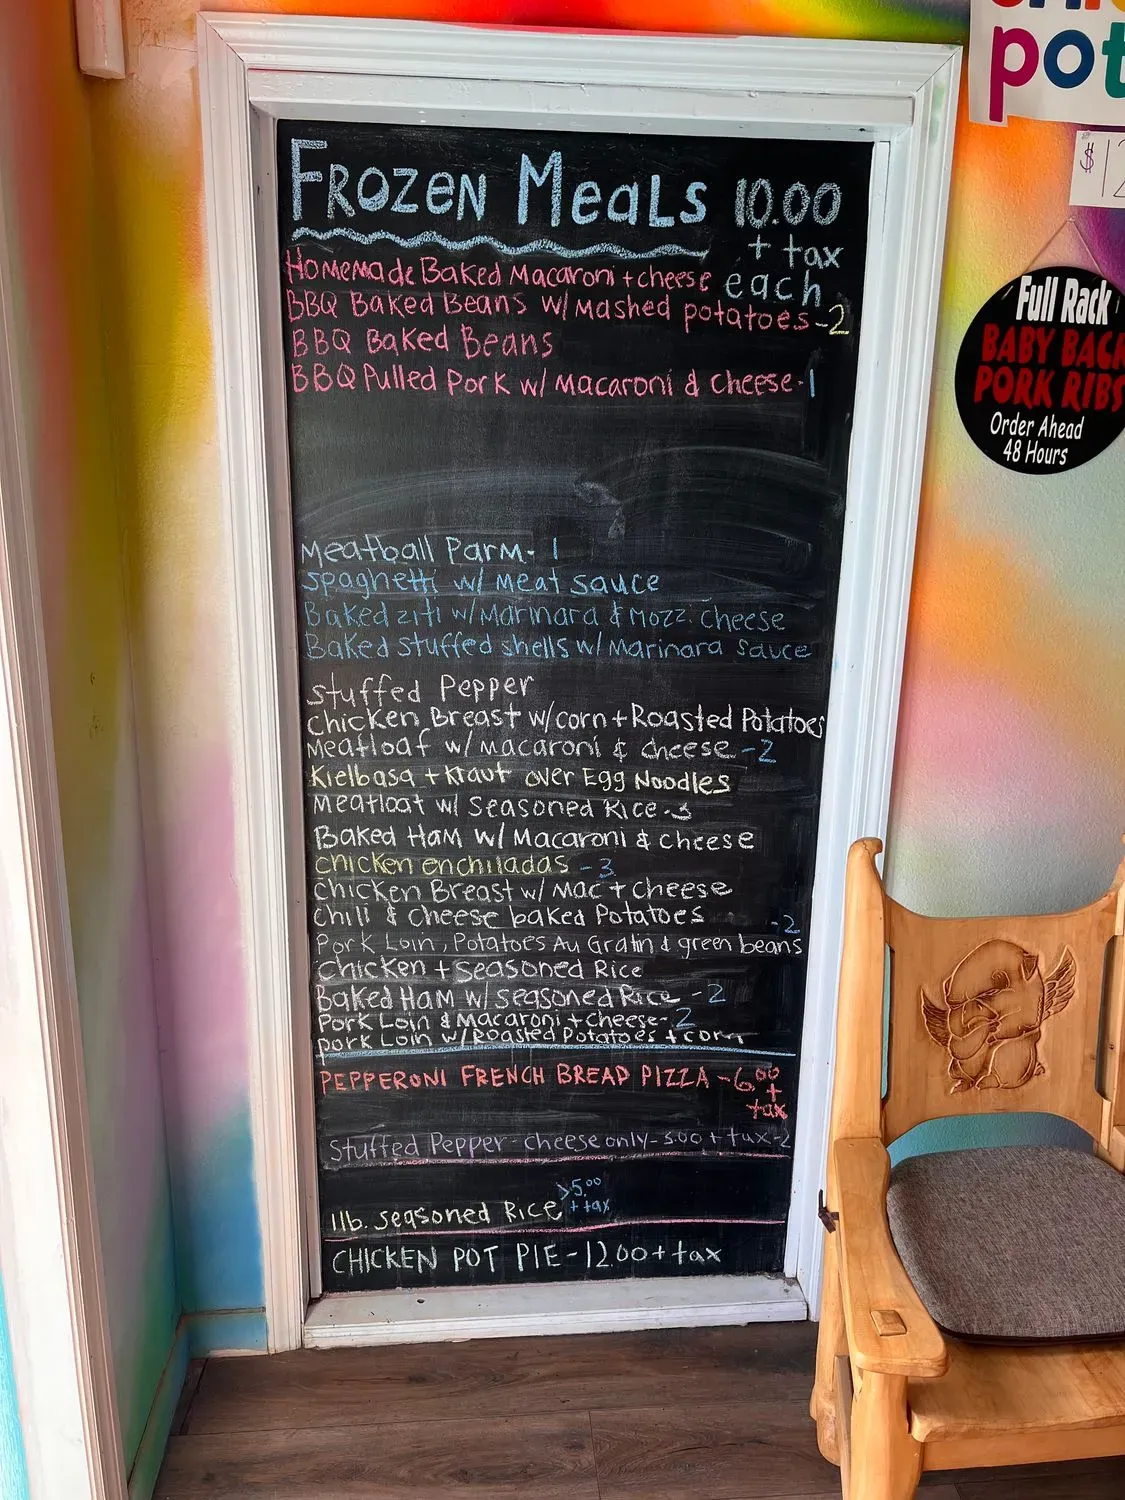 FROZEN MEALS 10.00
+ tax
each
Homemade Baked Macaroni + cheese
BBQ Baked Beans w/ Mashed potatoes -2
BBQ Baked Beans
BBQ Pulled Pork w/ Macaroni & cheese -1
Meatball Parm - 1
Spaghetti w/ Meat sauce
Baked ziti w/ Marinara & Mozz. cheese
Baked stuffed shells w/ Marinara sauce
Stuffed Pepper
Chicken Breast w/ corn + Roasted Potatoes
Meatloaf w/ macaroni & cheese -2
Kielbasa + Kraut over Egg Noodles
Meatloaf w/ Seasoned Rice -3
Baked Ham w/ Macaroni & cheese
chicken enchiladas - 3
Chicken Breast w/ Mac + cheese
Chili & cheese baked Potatoes -2
Pork Loin, Potatoes Au Gratin & green beans
Chicken + seasoned Rice
Baked Ham w/ seasoned Rice -2
Pork Loin & Macaroni + cheese- 2
pork Loin w/ Roasted Potatoes + corn
PEPPERONI FRENCH BREAD PIZZA - 6.00
+
tax
Stuffed Pepper - cheese only - 5.00 + tax -2
>5.00
1lb. seasoned Rice + tax
CHICKEN POT PIE - 12.00 + tax
pot
$12
Full Rack
BABY BACK
PORK RIBS
Order Ahead
48 Hours